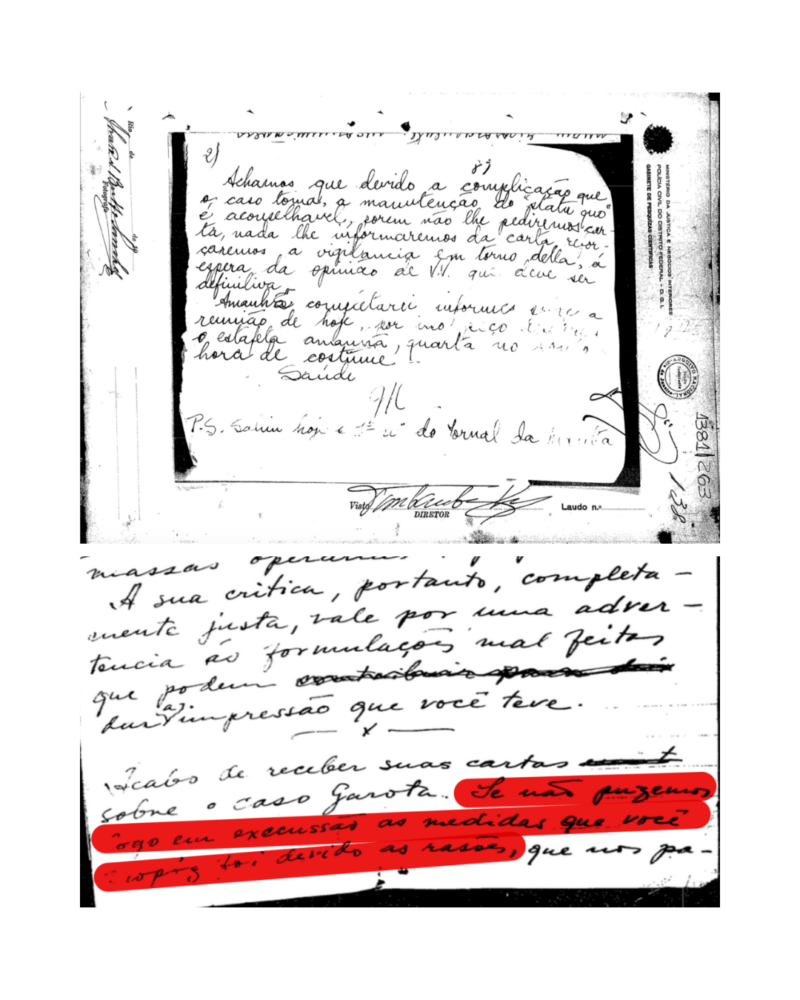 2)
89
Achamos que devido a complicação que
o caso toma, a manutenção do "statu quo"
é aconselhavel, porem não lhe pediremos car-
ta, nada lhe informaremos da carta, refor-
çaremos a vigilancia em torno della, á
espera da opinião de V.V. que deve ser
definitiva.
Amanhã completarei informes sobre a
reunião de hoje, por isso peço
o estafeta amanhã, quarta no
hora de costume.
Saúde
M
P.S. Sahiu hoje o 1º nº do Jornal da
Visto
DIRETOR
Laudo n.º
Rio de
Fotografo
MINISTERIO DA JUSTIÇA E NEGOCIOS INTERIORES
POLICIA CIVIL DO DISTRITO FEDERAL - D. G. I.
GABINETE DE PESQUIZAS CIENTIFICAS
1381/263
138
massas
A sua critica, portanto, completa-
mente justa, vale por uma adver-
tencia ás formulações mal feitas
que podem contribuir para
dar a impressão que você teve.
x
Acabo de receber suas cartas
sobre o caso Garota. Se não puzemos
logo em excussão as medidas que você
propôz foi devido as rasões, que nos pa-